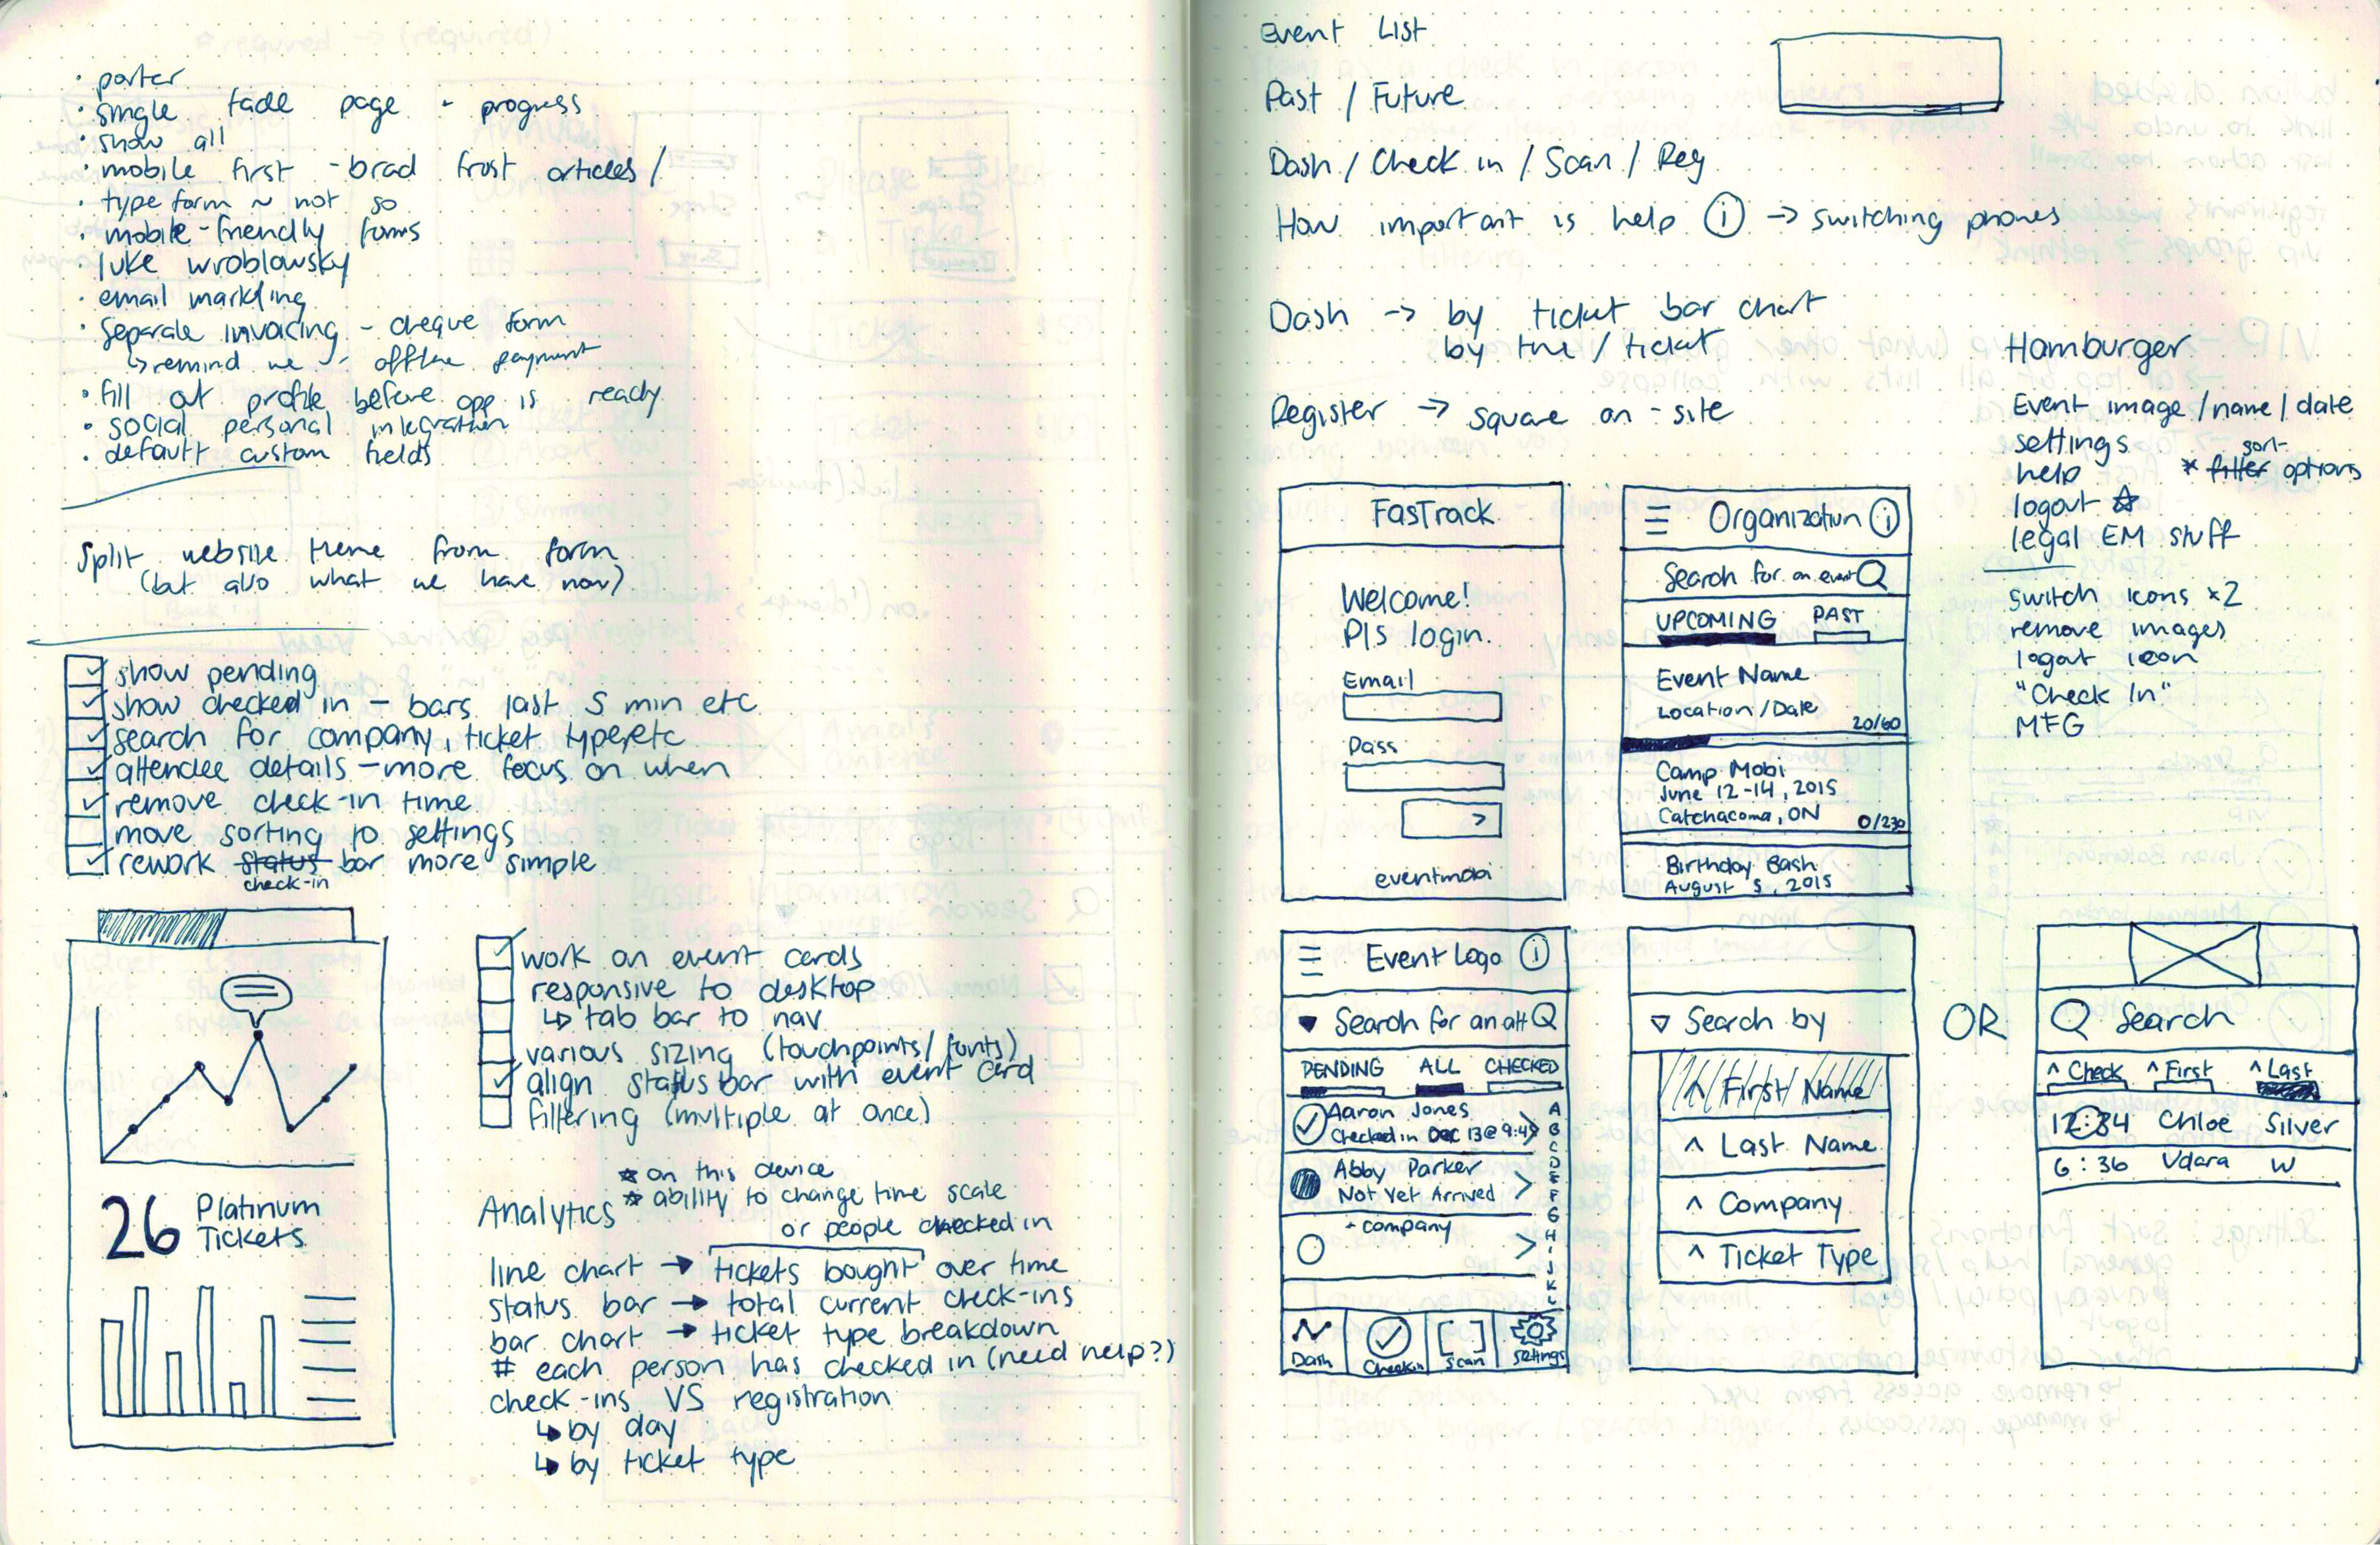 • porter
• single fade page - progress
• show all
• mobile first - brad frost articles /
• type form ~ not so
• mobile-friendly forms
• luke wroblowsky
• email markting
• separate invoicing - cheque form
↳ remind me - offline payment
• fill out profile before app is ready
• social personal integration
• default custom fields
Split website theme from form
(but also what we have now)
show pending
show checked in - bars last 5 min etc
search for company, ticket type, etc
attendee details - more focus on when
remove check-in time
move sorting to settings
rework status bar more simple
check-in
26 Platinum
Tickets
work on event cards
responsive to desktop
↳ tab bar to nav
various sizing (touchpoints/fonts)
align status bar with event card
filtering (multiple at once)
* on this device
Analytics * ability to change time scale
or people checked in
line chart → tickets bought over time
status bar → total current check-ins
bar chart → ticket type breakdown
# each person has checked in (need help?)
check-ins VS registration
↳ by day
↳ by ticket type
Event List
Past / Future
Dash / Check in / Scan / Reg
How important is help ⓘ → switching phones
Dash → by ticket bar chart
by time / ticket
Register → square on-site
Hamburger
Event image / name / date
settings
help
sort
* filter options
logout ☆
legal EM stuff
switch icons x2
remove images
logout icon
"Check In"
MFG
FasTrack
Welcome!
Pls login.
Email
Pass
>
eventmobi
Organization ⓘ
Search for an event
UPCOMING PAST
Event Name
Location / Date
20/60
Camp Mobi
June 12-14, 2015
Catchacoma, ON 0/230
Birthday Bash
August 5, 2015
Event Logo ⓘ
Search for an att
PENDING ALL CHECKED
Aaron Jones
Checked in Dec 13 @ 9:45
Abby Parker
Not Yet Arrived
- company
A
B
C
D
E
F
G
H
I
J
K
L
Dash Checkin Scan Settings
▽ Search by
^ First Name
^ Last Name
^ Company
^ Ticket Type
OR
Search
^ Check ^ First ^ Last
12:34 Chloe Silver
6:36 Vdara W